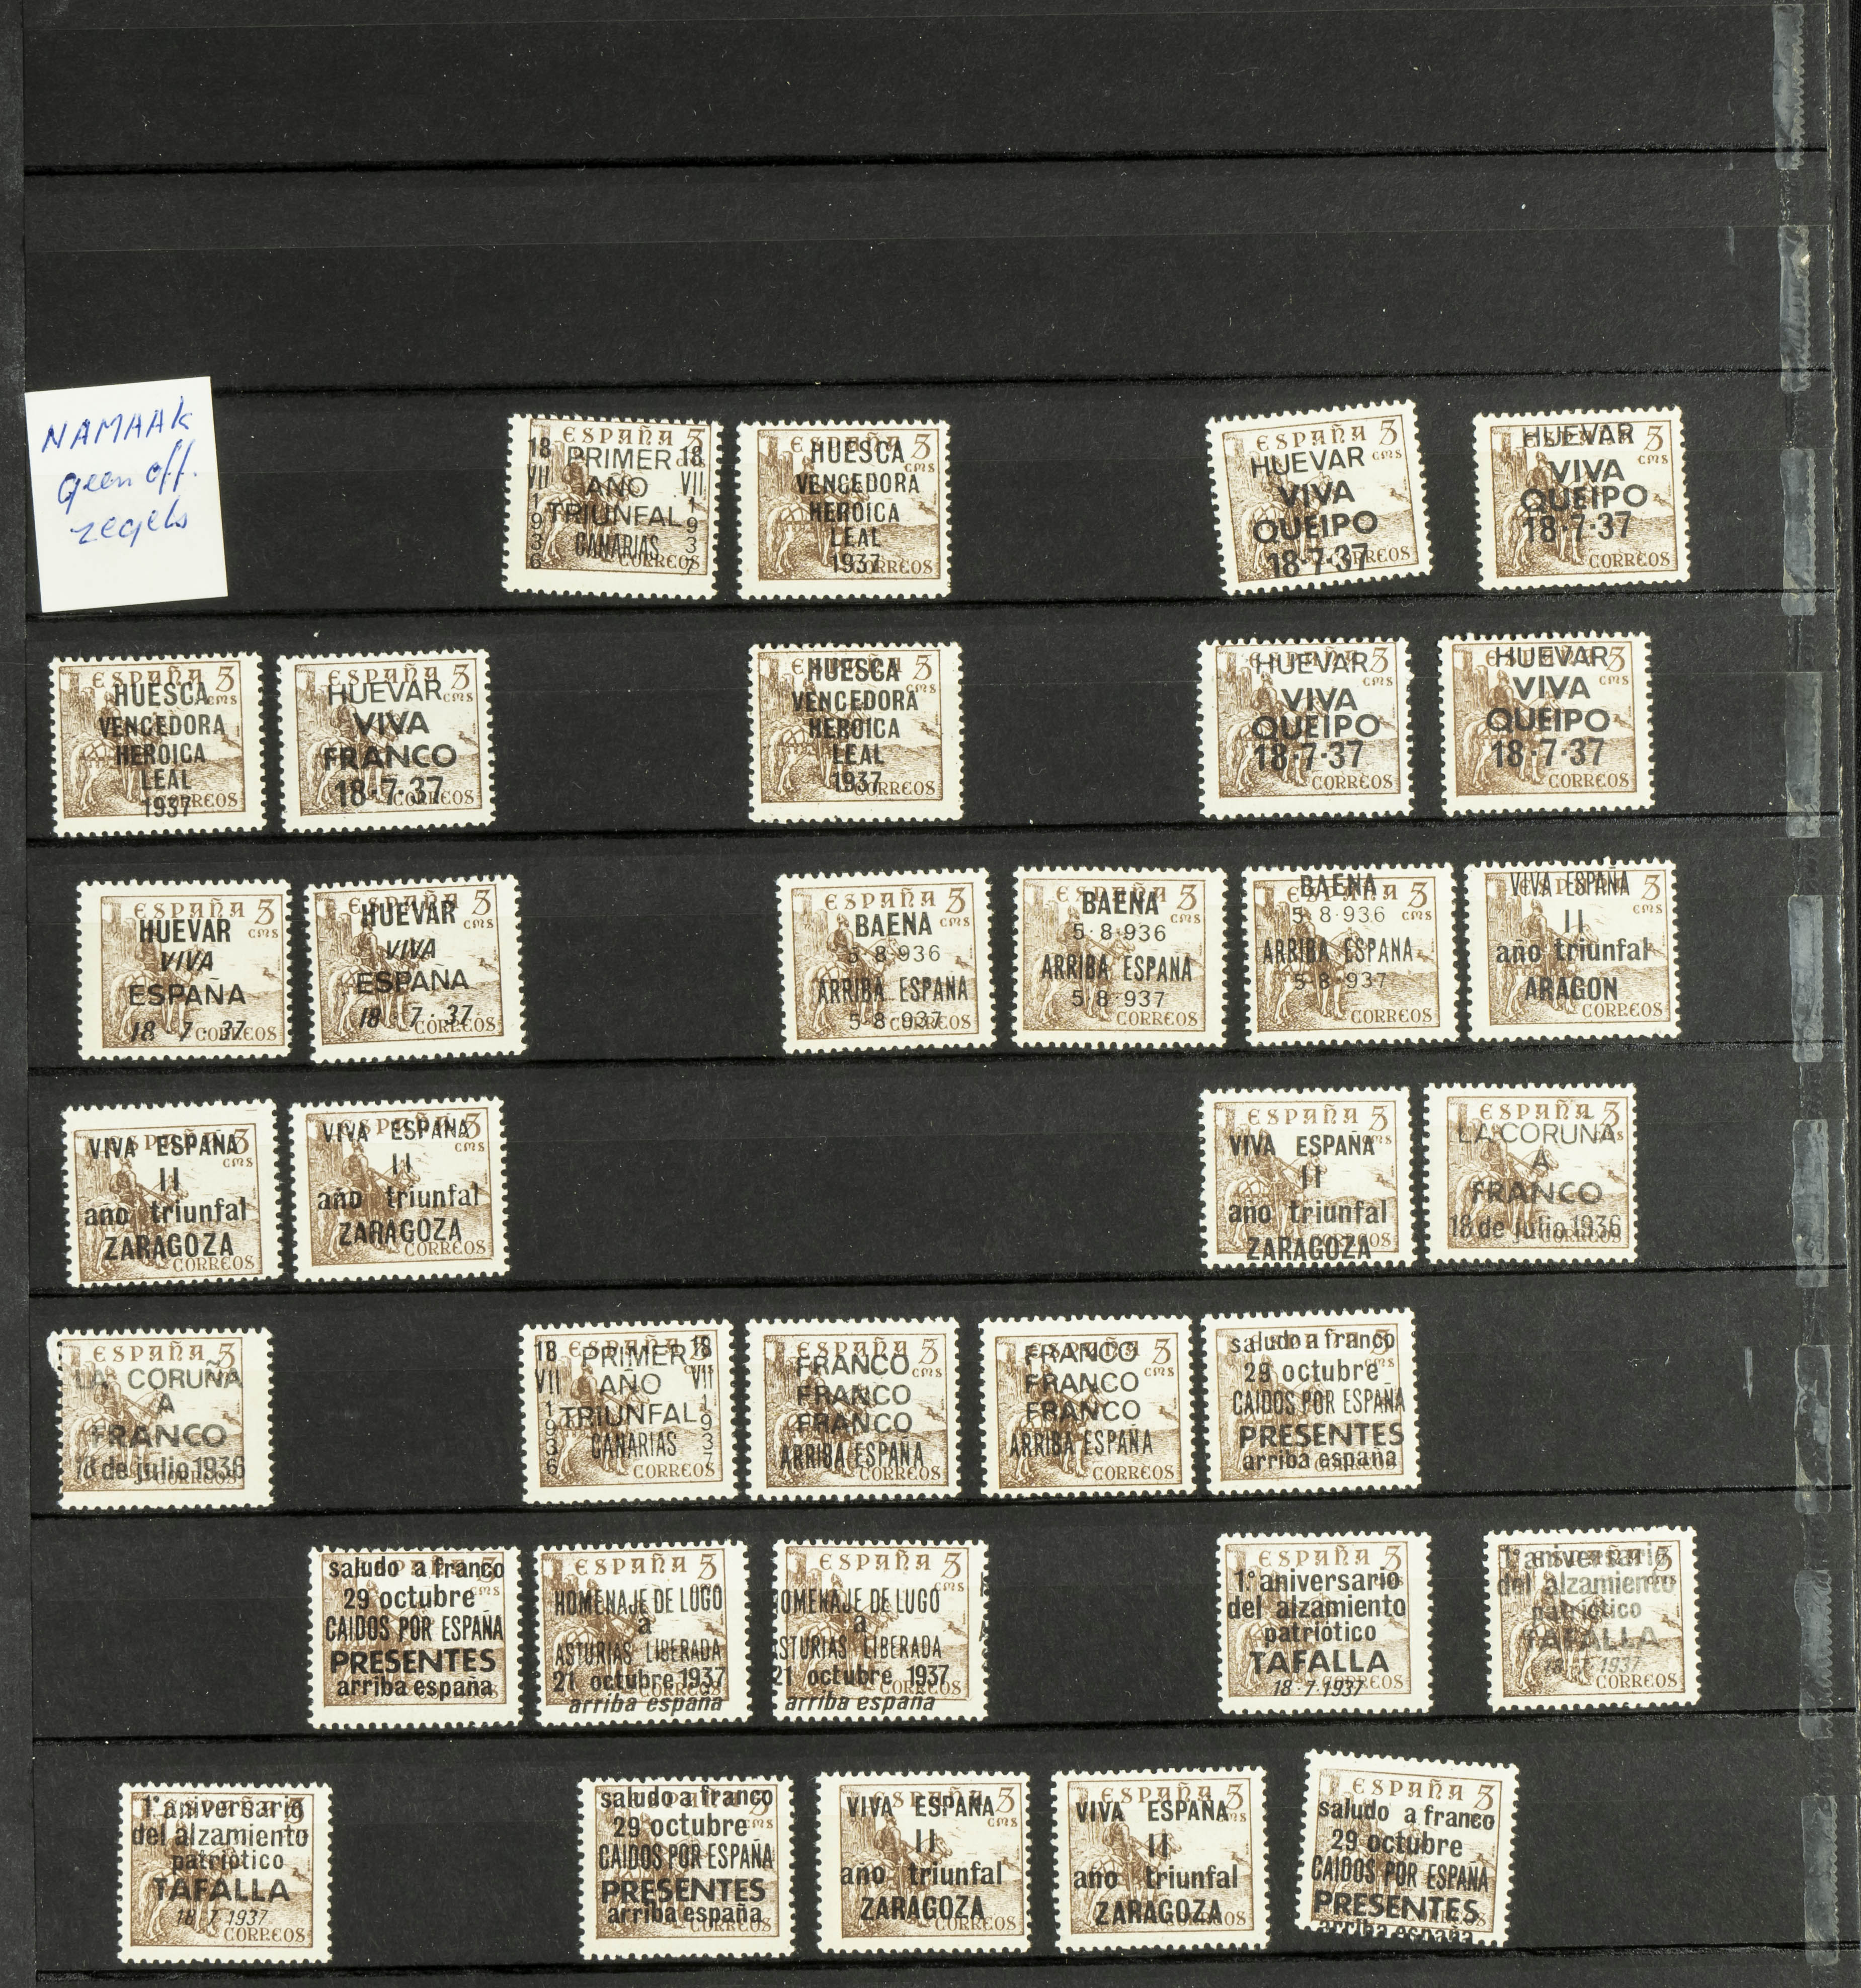 NAMAAK
geen off.
zegels
ESPAÑA 3
CMS
18 PRIMER 18
VII AÑO VII
1936 TRIUNFAL 1937
CANARIAS
CORREOS
ESPAÑA 3
CMS
HUESCA
VENCEDORA
HEROICA
LEAL
1937
CORREOS
ESPAÑA 3
CMS
HUEVAR
VIVA
QUEIPO
18·7·37
CORREOS
ESPAÑA 3
CMS
HUEVAR
VIVA
QUEIPO
18·7·37
CORREOS
ESPAÑA 3
CMS
HUESCA
VENCEDORA
HEROICA
LEAL
1937
CORREOS
ESPAÑA 3
CMS
HUEVAR
VIVA
FRANCO
18·7·37
CORREOS
ESPAÑA 3
CMS
HUESCA
VENCEDORA
HEROICA
LEAL
1937
CORREOS
ESPAÑA 3
CMS
HUEVAR
VIVA
QUEIPO
18·7·37
CORREOS
ESPAÑA 3
CMS
HUEVAR
VIVA
QUEIPO
18·7·37
CORREOS
ESPAÑA 3
CMS
HUEVAR
VIVA
ESPAÑA
18 · 7 · 37
CORREOS
ESPAÑA 3
CMS
HUEVAR
VIVA
ESPAÑA
18 · 7 · 37
CORREOS
ESPAÑA 3
CMS
BAENA
5·8·936
ARRIBA ESPAÑA
5·8·937
CORREOS
ESPAÑA 3
CMS
BAENA
5·8·936
ARRIBA ESPAÑA
5·8·937
CORREOS
ESPAÑA 3
CMS
BAENA
5·8·936
ARRIBA ESPAÑA
5·8·937
CORREOS
ESPAÑA 3
CMS
VIVA ESPAÑA
II
año triunfal
ARAGON
CORREOS
ESPAÑA 3
CMS
VIVA ESPAÑA
II
año triunfal
ZARAGOZA
CORREOS
ESPAÑA 3
CMS
VIVA ESPAÑA
II
año triunfal
ZARAGOZA
CORREOS
ESPAÑA 3
CMS
VIVA ESPAÑA
II
año triunfal
ZARAGOZA
CORREOS
ESPAÑA 3
CMS
LA CORUÑA
A
FRANCO
18 de julio 1936
CORREOS
ESPAÑA 3
CMS
LA CORUÑA
A
FRANCO
18 de julio 1936
CORREOS
ESPAÑA 3
CMS
18 PRIMER 18
VII AÑO VII
1936 TRIUNFAL 1937
CANARIAS
CORREOS
ESPAÑA 3
CMS
FRANCO
FRANCO
FRANCO
ARRIBA ESPAÑA
CORREOS
ESPAÑA 3
CMS
FRANCO
FRANCO
FRANCO
ARRIBA ESPAÑA
CORREOS
ESPAÑA 3
CMS
saludo a franco
29 octubre
CAIDOS POR ESPAÑA
PRESENTES
arriba españa
CORREOS
ESPAÑA 3
CMS
saludo a franco
29 octubre
CAIDOS POR ESPAÑA
PRESENTES
arriba españa
CORREOS
ESPAÑA 3
CMS
HOMENAJE DE LUGO
a
ASTURIAS LIBERADA
21 octubre 1937
arriba españa
CORREOS
ESPAÑA 3
CMS
OMENAJE DE LUGO
a
STURIAS LIBERADA
21 octubre 1937
arriba españa
CORREOS
ESPAÑA 3
CMS
1º aniversario
del alzamiento
patriótico
TAFALLA
18·7·1937
CORREOS
ESPAÑA 3
CMS
1º aniversario
del alzamiento
patriótico
TAFALLA
18·7·1937
CORREOS
ESPAÑA 3
CMS
1º aniversario
del alzamiento
patriótico
TAFALLA
18·7·1937
CORREOS
ESPAÑA 3
CMS
saludo a franco
29 octubre
CAIDOS POR ESPAÑA
PRESENTES
arriba españa
CORREOS
ESPAÑA 3
CMS
VIVA ESPAÑA
II
año triunfal
ZARAGOZA
CORREOS
ESPAÑA 3
CMS
VIVA ESPAÑA
II
año triunfal
ZARAGOZA
CORREOS
ESPAÑA 3
CMS
saludo a franco
29 octubre
CAIDOS POR ESPAÑA
PRESENTES
arriba españa